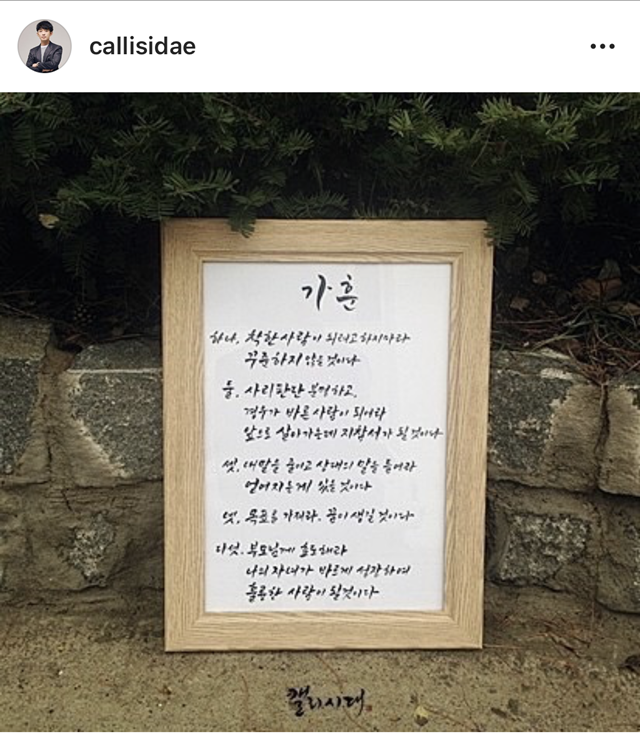 callisidae
가훈
하나, 착한 사람이 되려고 하지마라
꾸준하지 않을 것이다
둘, 사리판단 분명하고,
경우가 바른 사람이 되어라
앞으로 살아가는데 지참서가 될 것이다
셋, 내말을 줄이고 상대의 말을 들어라
얻어지는게 있을 것이다
넷, 목표를 가져라, 꿈이 생길 것이다
다섯, 부모님께 효도해라
나의 자녀가 바르게 성장하여
훌륭한 사람이 될것이다
캘리시대